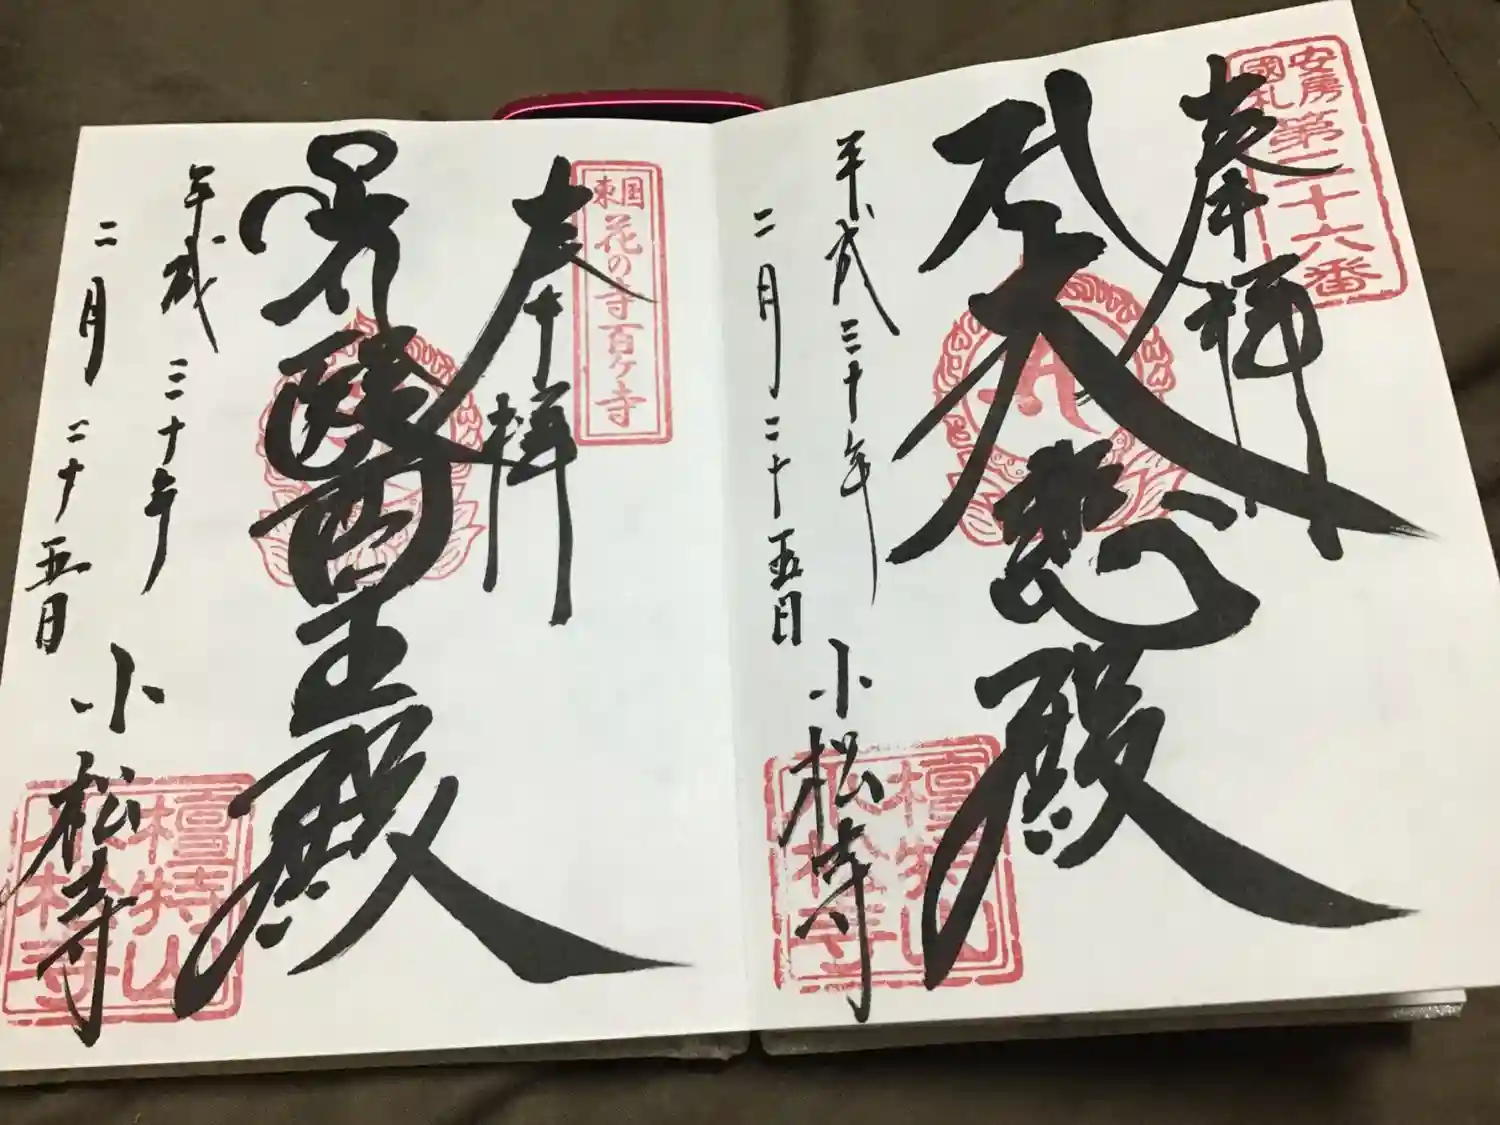 安房國札第二十六番
奉拝
大悲殿
平成三十年
二月二十五日
小松寺
檀特山
小松寺
東国花の寺百ヶ寺
奉拝
醫王殿
平成三十年
二月二十五日
小松寺
檀特山
小松寺